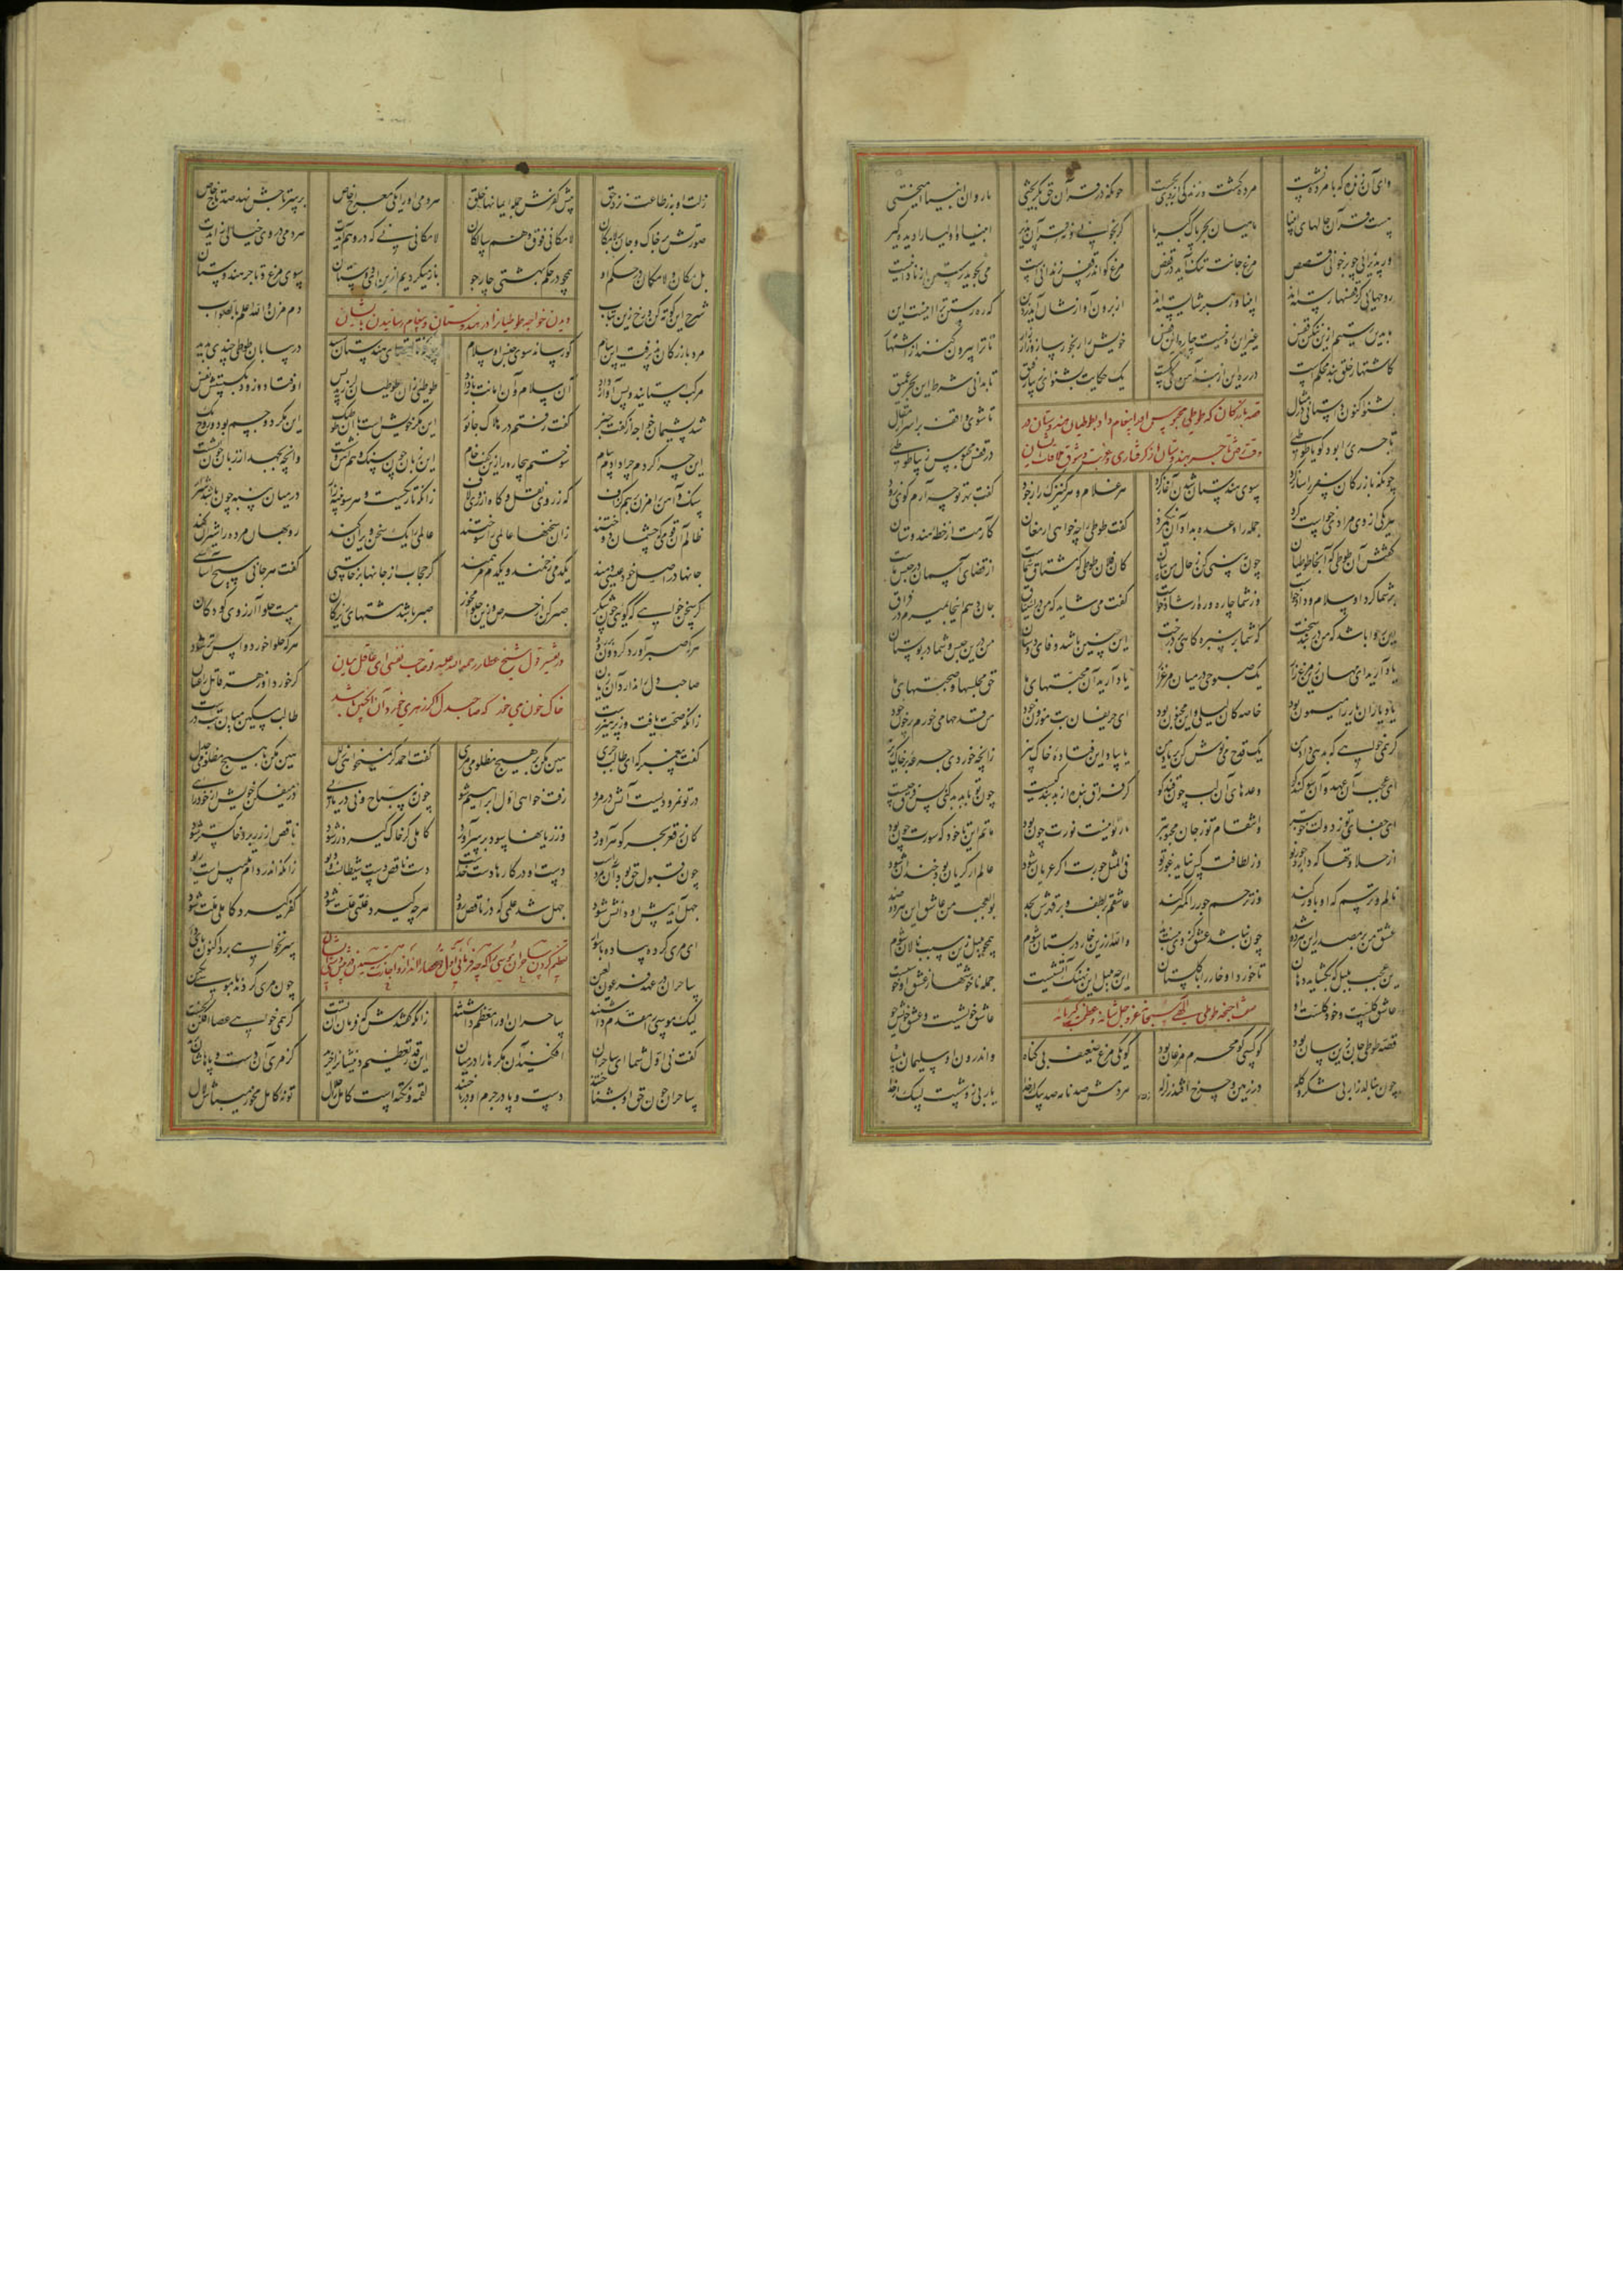 وای آن زنده که با مرده نشست مرده گشت و زندگی از وی بجست چونکه در قرآن حق بگریختی با روان انبیا آمیختی
هست قرآن حالهای انبیا ماهیان بحر پاک کبریا گر بخوانی و نه قرآن پذیر انبیا و اولیا را دیده گیر
ور پذیرائی چو برخوانی قصص مرغ جانت تنگ آید در قفص مرغ کو اندر قفص زندانی است می نجوید رستن از نادانیست
روحهایی کز قفسها رسته‌اند انبیا و رهبر شایسته‌اند از برون آوازشان آید ز دین که ره رستن ترا اینست این
ما بدین رستیم ازین تنگین قفس غیر این ره نیست چاره این قفس خویش را رنجور ساز و زار زار تا ترا بیرون کنند از اشتهار
کاشتهار خلق بند محکم است در ره این از بند آهن کی کمست یک حکایت بشنو ای زیبا رفیق تا بدانی شرط این بحر عمیق
بشنو اکنون داستانی در مثال تا شوی واقف بر اسرار مقال
قصه بازرگان که طوطی محبوس او را پیغام داد بطوطیان هندوستان در
وقت رفتن تاجر بهندوستان از گرفتاری
تاجری بود و کو با طوطیی در قفس محبوس زیبا طوطیی
چونکه بازرگان سفر را ساز کرد سوی هندستان شدن آغاز کرد هر غلام و هر کنیزک را ز جود گفت بهر تو چه آرم گوی زود
هر یکی از وی مرادی خواست کرد جمله را وعده بداد آن نیک مرد گفت طوطی را چه خواهی ارمغان کارمت از خطه هندوستان
گفتش آن طوطی که آنجا طوطیان چون ببینی کن ز حال من بیان کان فلان طوطی که مشتاق شماست از قضای آسمان در حبس ماست
بر شما کرد او سلام و داد خواست وز شما چاره و ره ارشاد خواست گفت می شاید که من در اشتیاق جان دهم اینجا بمیرم در فراق
این روا باشد که من در بند سخت گه شما بر سبزه گاهی بر درخت این چنین باشد وفای دوستان من درین حبس و شما در بوستان
یاد آرید ای مهان زین مرغ زار یک صبوحی در میان مرغزار یاد آرید آن محبتهای ما حق مجلسها و صحبتهای ما
یاد یاران یار را میمون بود خاصه کان لیلی و این مجنون بود ای حریفان بت موزون خود من قدحها می خورم پر خون خود
یک قدح می نوش کن بر یاد من گر نمی خواهی که بدهی داد من یا بیاد این فتاده خاک بیز زانچه خوردی جرعه بر خاک ریز
ای عجب آن عهد و آن سوگند کو وعدهای آن لب چون قند کو گر فراق بنده از بد بندگیست چون تو با بد بد کنی پس فرق چیست
ای جفای تو ز دولت خوبتر و انتقام تو ز جان محبوبتر نار تو اینست نورت چون بود ماتم این تا خود که سورت چون بود
از حلاوتها که دارد جور تو وز لطافت کس نیابد غور تو فی المثل جورت اگر عریان شود عالم ار گریان بود خندان شود
نالم و ترسم که او باور کند وز ترحم جور را کمتر کند عاشقم بر لطف و بر قهرش بجد بوالعجب من عاشق این هر دو ضد
عشق من بر مصدر این هر دو شد چون نباشد عشق والله ار زین خار در بستان شوم همچو بلبل زین سبب نالان شوم
این عجب بلبل که بگشاید دهان تا خورد او خار را با گلستان این چه بلبل این نهنگ آتشیست جمله ناخوشها ز عشق او را خوشیست
عاشق کلست و خود کلست او عاشق خویشست و عشق خویش جو
صفت اجنحه طوطی
قصه طوطی جان زین سان بود کو کسی کو محرم مرغان بود کو یکی مرغ ضعیف بی گناه و اندرون او سلیمان با سپاه
چون بنالد زار بی شکر و گله در زمین و چرخ افتد زلزله هر دمش صد نامه صد پیک از خدا یا ربی زو شصت لبیک از خدا
زلت او به ز طاعت نزد حق پیش کفرش جمله ایمانها خلق هر دمی او را یکی معراج خاص بر سر تاجش نهد صد تاج خاص
صورتش بر خاک و جان بر لامکان لامکانی فوق وهم سالکان لامکانی نی که در وهم آیدت هر دمی در وی خیالی زایدت
بل مکان و لامکان در حکم او همچو در حکم بهشتی چار جو باز می‌گردیم ازین ای دوستان سوی مرغ و تاجر هندوستان
شرح این کوته کن و رخ زین بتاب دم مزن والله اعلم بالصواب
دیدن خواجه طوطیان را در هندوستان و پیغام رسانیدن
مرد بازرگان پذیرفت این پیام کو رساند سوی جنس او سلام چونکه تا اقصای هندستان رسید در بیابان طوطی چندی بدید
مرکب استانید و پس آواز داد آن سلام و آن امانت باز داد طوطیی زان طوطیان لرزید پس اوفتاد و مرد و بگسستش نفس
شد پشیمان خواجه از گفت خبر گفت رفتم در هلاک جانور این مگر خویش است با آن طوطیک این مگر دو جسم بود و روح یک
این چرا کردم چرا دادم پیام سوختم بیچاره را زین گفت خام این زبان چون سنگ و هم آتش وشست وانچه بجهد از زبان چون آتشست
سنگ و آهن را مزن بر هم گزاف گه ز روی نقل و گاه از روی لاف زانکه تاریکست و هر سو پنبه زار در میان پنبه چون باشد شرار
ظالم آن قومی که چشمان دوختند زان سخنها عالمی را سوختند عالمی را یک سخن ویران کند روبهان مرده را شیران کند
جانها در اصل خود عیسی دمند یک دمی زخمند و یک دم مرهمند گر حجاب از جانها برخاستی گفت هر جانی مسیح آساستی
گر سخن خواهی که گویی چون شکر صبر کن از حرص و این حلوا مخور صبر باشد مشتهای زیرکان هست حلوا آرزوی کودکان
هر که صبر آورد گردون بر رود هر که حلوا خورد واپس تر شود
در تفسیر قول شیخ عطار رحمه الله علیه تو صاحب نفسی ای غافل میان
خاک خون می خور که صاحبدل اگر زهری خورد آن انگبین باشد
صاحب دل را ندارد آن زیان گر خورد او زهر قاتل را عیان
زانکه صحت یافت وز پرهیز رست طالب مسکین میان تب درست
گفت پیغمبر که ای طالب جری هین مکن با هیچ مطلوبی مری
در تو نمرودیست آتش در مرو رفت خواهی اول ابراهیم شو چون نه سباح و نی دریایی در میفکن خویش از خودرایی
کان ز قعر بحر گوهر آورد وز زیانها سود بر سر آورد کاملی گر خاک گیرد زر شود ناقص ار زر برد خاکستر شود
چون قبول حق بود آن مرد راست دست او در کارها دست خداست دست ناقص دست شیطانست و دیو زانکه اندر دام تلبیس است و ریو
جهل آید پیش او دانش شود جهل شد علمی که در ناقص رود هر چه گیرد علتی علت شود کفر گیرد کاملی ملت شود
ای مری کرده پیاده با سوار سر نخواهی برد اکنون پای دار
تعظیم کردن ساحران موسی را که چه فرمائی اول
ساحران در عهد فرعون لعین چون مری کردند با موسی بکین
لیک موسی را مقدم داشتند ساحران او را معظم داشتند زانکه گفتندش که فرمان آن تست گر همی خواهی عصا افکن نخست
گفت نی اول شما ای ساحران افکنید آن مکرها را در میان این قدر تعظیم دینشان را خرید کز مری آن دست و پاهاشان
ساحران چون حق او بشناختند دست و پا در جرم او در باختند لقمه و نکته است کامل را حلال تو نه کامل مخور می‌باش لال